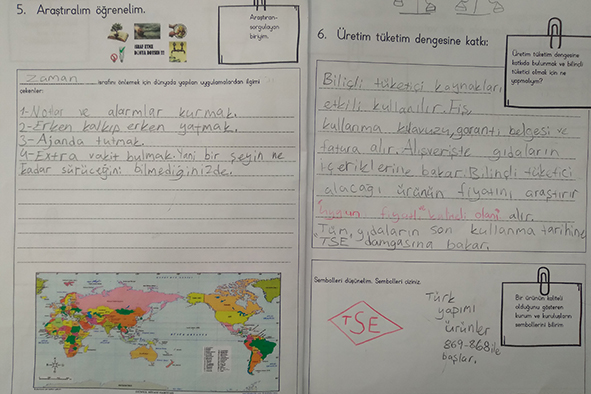 5. Araştıralım öğrenelim.
Araştıran-
sorgulayan
biriyim.
Zaman israfını önlemek için dünyada yapılan uygulamalardan ilgimi
çekenler:
1-Notlar ve alarmlar kurmak.
2-Erken kalkıp erken yatmak.
3-Ajanda tutmak.
4-Extra vakit bulmak. Yani bir şeyin ne
kadar süreceğini bilmediğinizde.
6. Üretim tüketim dengesine katkı:
Üretim tüketim dengesine
katkıda bulunmak ve bilinçli
tüketici olmak için ne
yapmalıyım?
Bilinçli tüketici kaynakları
etkili kullanılır. Fiş,
kullanma kılavuzu, garanti belgesi ve
fatura alır. Alışverişte gıdaların
içeriklerine bakar. Bilinçli tüketici
alacağı ürünün fiyatını araştırır
"uygun fiyatlı" "kaliteli olanı" alır.
Tüm gıdaların son kullanma tarihine
"TSE" damgasına bakar.
Sembolleri düşünelim. Sembolleri çiziniz.
Bir ürünün kaliteli
olduğunu gösteren
kurum ve kuruluşların
sembollerini bilirim
TSE
Türk
yapımı
ürünler
869-868 ile
başlar.